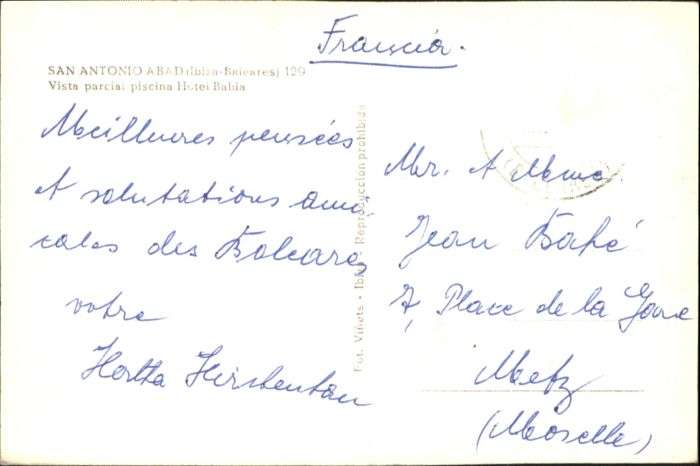 Francia.
SAN ANTONIO ABAD (Ibiza-Baleares) 129
Vista parcial piscina Hotel Bahia
Meilleures pensées
et salutations ami-
cales des Baleares
votre
Hertha
Fot. Viñets • Ibiza • Reproducción prohibida
Mr. et Mme.
Jean
7, Place de la Gare
Metz
(Moselle)